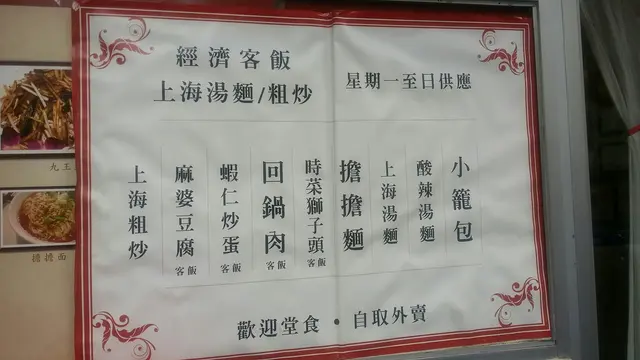 經濟客飯
上海湯麵/粗炒
星期一至日供應
小籠包
酸辣湯麵
上海湯麵
擔擔麵
時菜獅子頭客飯
回鍋肉客飯
蝦仁炒蛋客飯
麻婆豆腐客飯
上海粗炒
歡迎堂食・自取外賣
九王
擔擔面